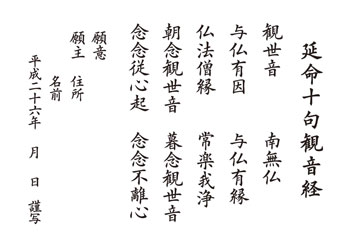 延命十句観音経
観世音　南無仏
与仏有因　与仏有縁
仏法僧縁　常楽我浄
朝念観世音　暮念観世音
念念従心起　念念不離心
願意
願主　住所
名前
平成二十六年　月　日　謹写